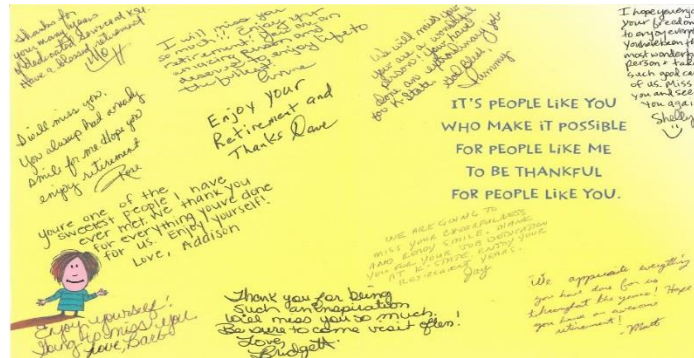 Thanks for
your many years
of dedicated service at KSU.
Have a blessed retirement
I will miss you
so much!!! Enjoy your
retirement. You are an
amazing person and
deserve to enjoy life to
the fullest
We will miss you
you are a wonderful
person. You have
done an extraordinary job
at K-State
Tammy
I hope you enjoy
your freedom
to enjoy every
You have been the
most wonderful
person & take
such good care
of us. Miss
you and see
you again
Shelly
I will miss you.
You always had a ready
smile for me. Hope you
enjoy retirement
Rose
Enjoy your
Retirement and
Thanks Dave
IT'S PEOPLE LIKE YOU
WHO MAKE IT POSSIBLE
FOR PEOPLE LIKE ME
TO BE THANKFUL
FOR PEOPLE LIKE YOU.
you're one of the
sweetest people I have
ever met. We thank you
for everything you've done
for us. Enjoy yourself!
Love, Addison
WE ARE GOING TO
MISS YOUR CHEERFULNESS
AND READY SMILE. THANK
YOU FOR YOUR JOB DEDICATION
AT K-STATE. ENJOY YOUR
RETIREMENT YEARS.
Jay
Enjoy yourself!
Going to miss you
Love, Barb
Thank you for being
Such an inspiration
We'll miss you so much.
Be sure to come visit often!
Love,
Bridgett
We appreciate everything
you have done for us
throughout the years! Hope
you have an awesome
retirement!
- Matt